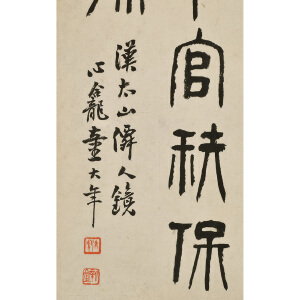 官秩保
漢太山僊人鏡
心龕童大年